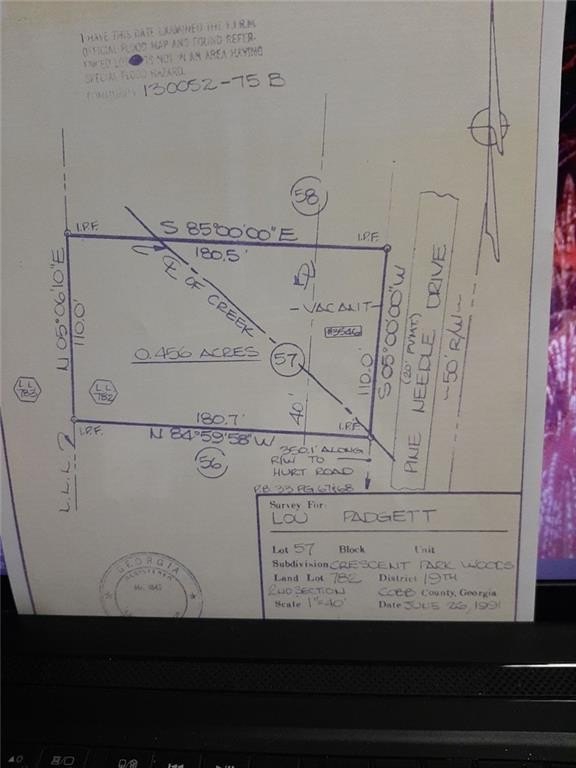 I HAVE THIS DATE EXAMINED THE F.I.R.M.
OFFICIAL FLOOD MAP AND FOUND REFER-
ENCED LOT IS NOT IN AN AREA HAVING
SPECIAL FLOOD HAZARD.
130052-75 B
58
I.P.F.
S 85°00'00" E
I.P.F.
180.5'
℄ OF CREEK
VACANT
#3546
N 05°06'10" E
110.0'
0.456 ACRES
57
110.0'
S 05°00'00" W
(20' PVMT.)
PINE NEEDLE DRIVE
50' R/W
L.L.
783
L.L.
782
40'
180.7'
I.P.F.
I.P.F.
N 84°59'58" W
56
L.L.L.
350.1' ALONG
R/W TO
HURT ROAD
P.B. 33 PG 67&68
Survey For:
LOU PADGETT
Lot 57 Block Unit
Subdivision CRESCENT PARK WOODS
Land Lot 782 District 19TH
2ND SECTION COBB County, Georgia
Scale 1"=40' Date JUNE 26, 1991
GEORGIA
REGISTERED